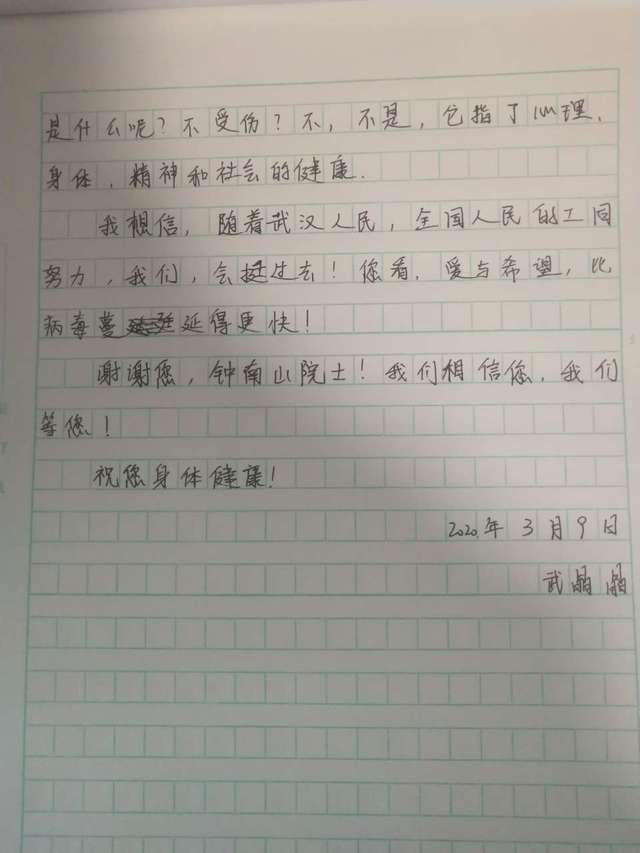 是什么呢？不受伤？不，不是，包指了心理、
身体、精神和社会的健康.
我相信，随着武汉人民，全国人民的工同
努力，我们，会挺过去！您看，爱与希望，比
病毒蔓延得更快！
谢谢您，钟南山院士！我们相信您，我们
等您！
祝您身体健康！
2020年3月9日
武晶晶